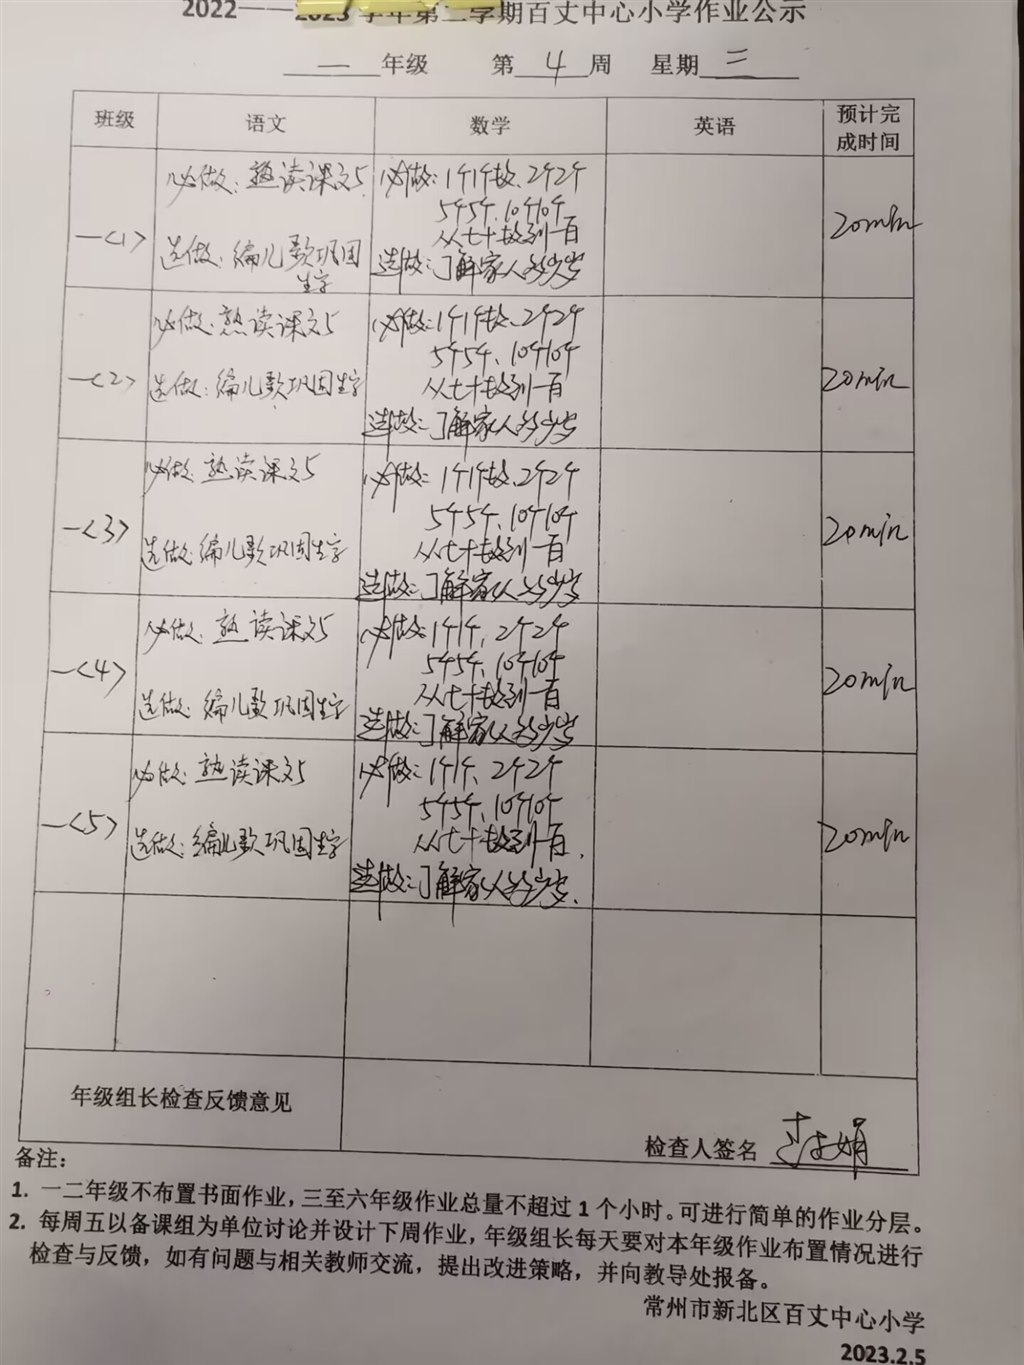 2022——2023学年第二学期百丈中心小学作业公示
一年级 第4周 星期三
班级 语文 数学 英语 预计完成时间
一<1>
必做：熟读课文5
选做：编儿歌巩固生字
必做：1个1个数、2个2个
5个5个、10个10个
从七十数到一百
选做：了解家人多少岁
20min
一<2>
必做：熟读课文5
选做：编儿歌巩固生字
必做：1个1个数、2个2个
5个5个、10个10个
从七十数到一百
选做：了解家人多少岁
20min
一<3>
必做：熟读课文5
选做：编儿歌巩固生字
必做：1个1个数、2个2个
5个5个、10个10个
从七十数到一百
选做：了解家人多少岁
20min
一<4>
必做：熟读课文5
选做：编儿歌巩固生字
必做：1个1个、2个2个
5个5个、10个10个
从七十数到一百
选做：了解家人多少岁
20min
一<5>
必做：熟读课文5
选做：编儿歌巩固生字
必做：1个1个、2个2个
5个5个、10个10个
从七十数到一百.
选做：了解家人多少岁.
20min
年级组长检查反馈意见
检查人签名
备注：
1. 一二年级不布置书面作业，三至六年级作业总量不超过1个小时。可进行简单的作业分层。
2. 每周五以备课组为单位讨论并设计下周作业，年级组长每天要对本年级作业布置情况进行
检查与反馈，如有问题与相关教师交流，提出改进策略，并向教导处报备。
常州市新北区百丈中心小学
2023.2.5